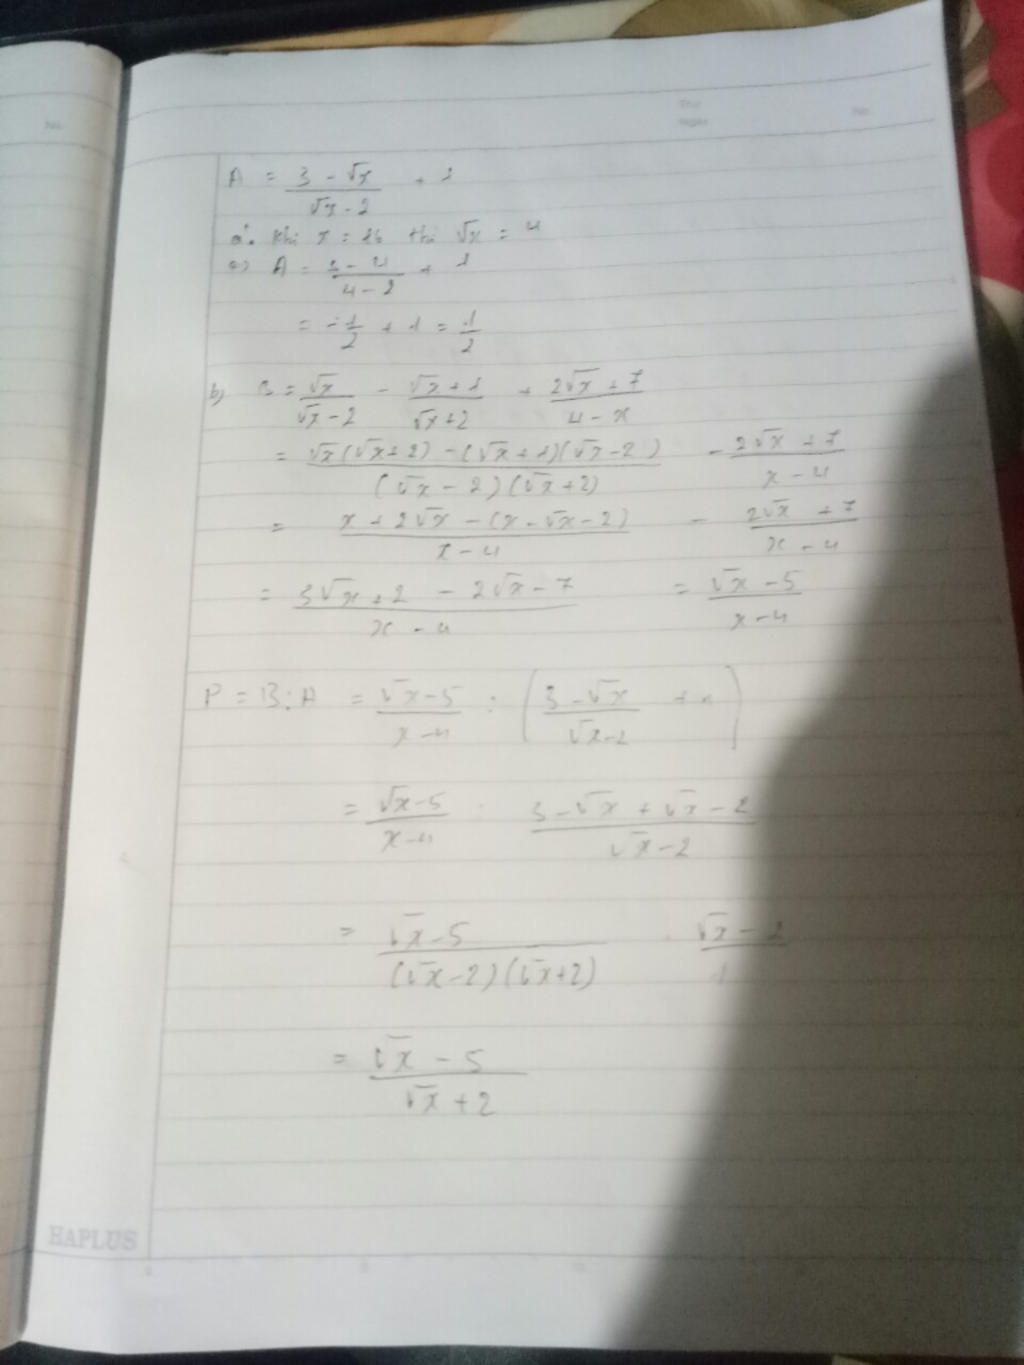 Thứ
Ngày
No.
No.
A = (3 - √x)/(√x - 2) + 1
a. Khi x = 16 thì √x = 4
=> A = (3 - 4)/(4 - 2) + 1
= -1/2 + 1 = 1/2
b) B = √x/(√x - 2) - (√x + 1)/(√x + 2) + (2√x + 7)/(4 - x)
= (√x(√x + 2) - (√x + 1)(√x - 2))/((√x - 2)(√x + 2)) - (2√x + 7)/(x - 4)
= (x + 2√x - (x - √x - 2))/(x - 4) - (2√x + 7)/(x - 4)
= (3√x + 2 - 2√x - 7)/(x - 4) = (√x - 5)/(x - 4)
P = B : A = (√x - 5)/(x - 4) : ((3 - √x)/(√x - 2) + 1)
= (√x - 5)/(x - 4) : (3 - √x + √x - 2)/(√x - 2)
= (√x - 5)/((√x - 2)(√x + 2)) . (√x - 2)/1
= (√x - 5)/(√x + 2)
HAPLUS